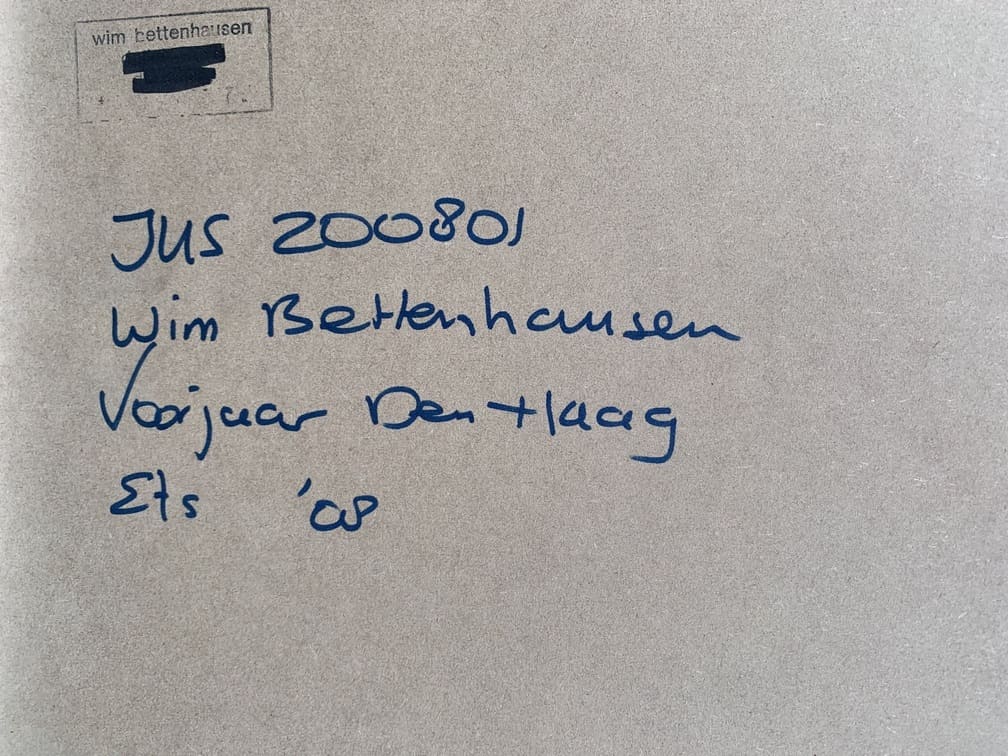 wim bettenhausen
JUS 200801
Wim Bettenhausen
Voorjaar Den Haag
Ets '08